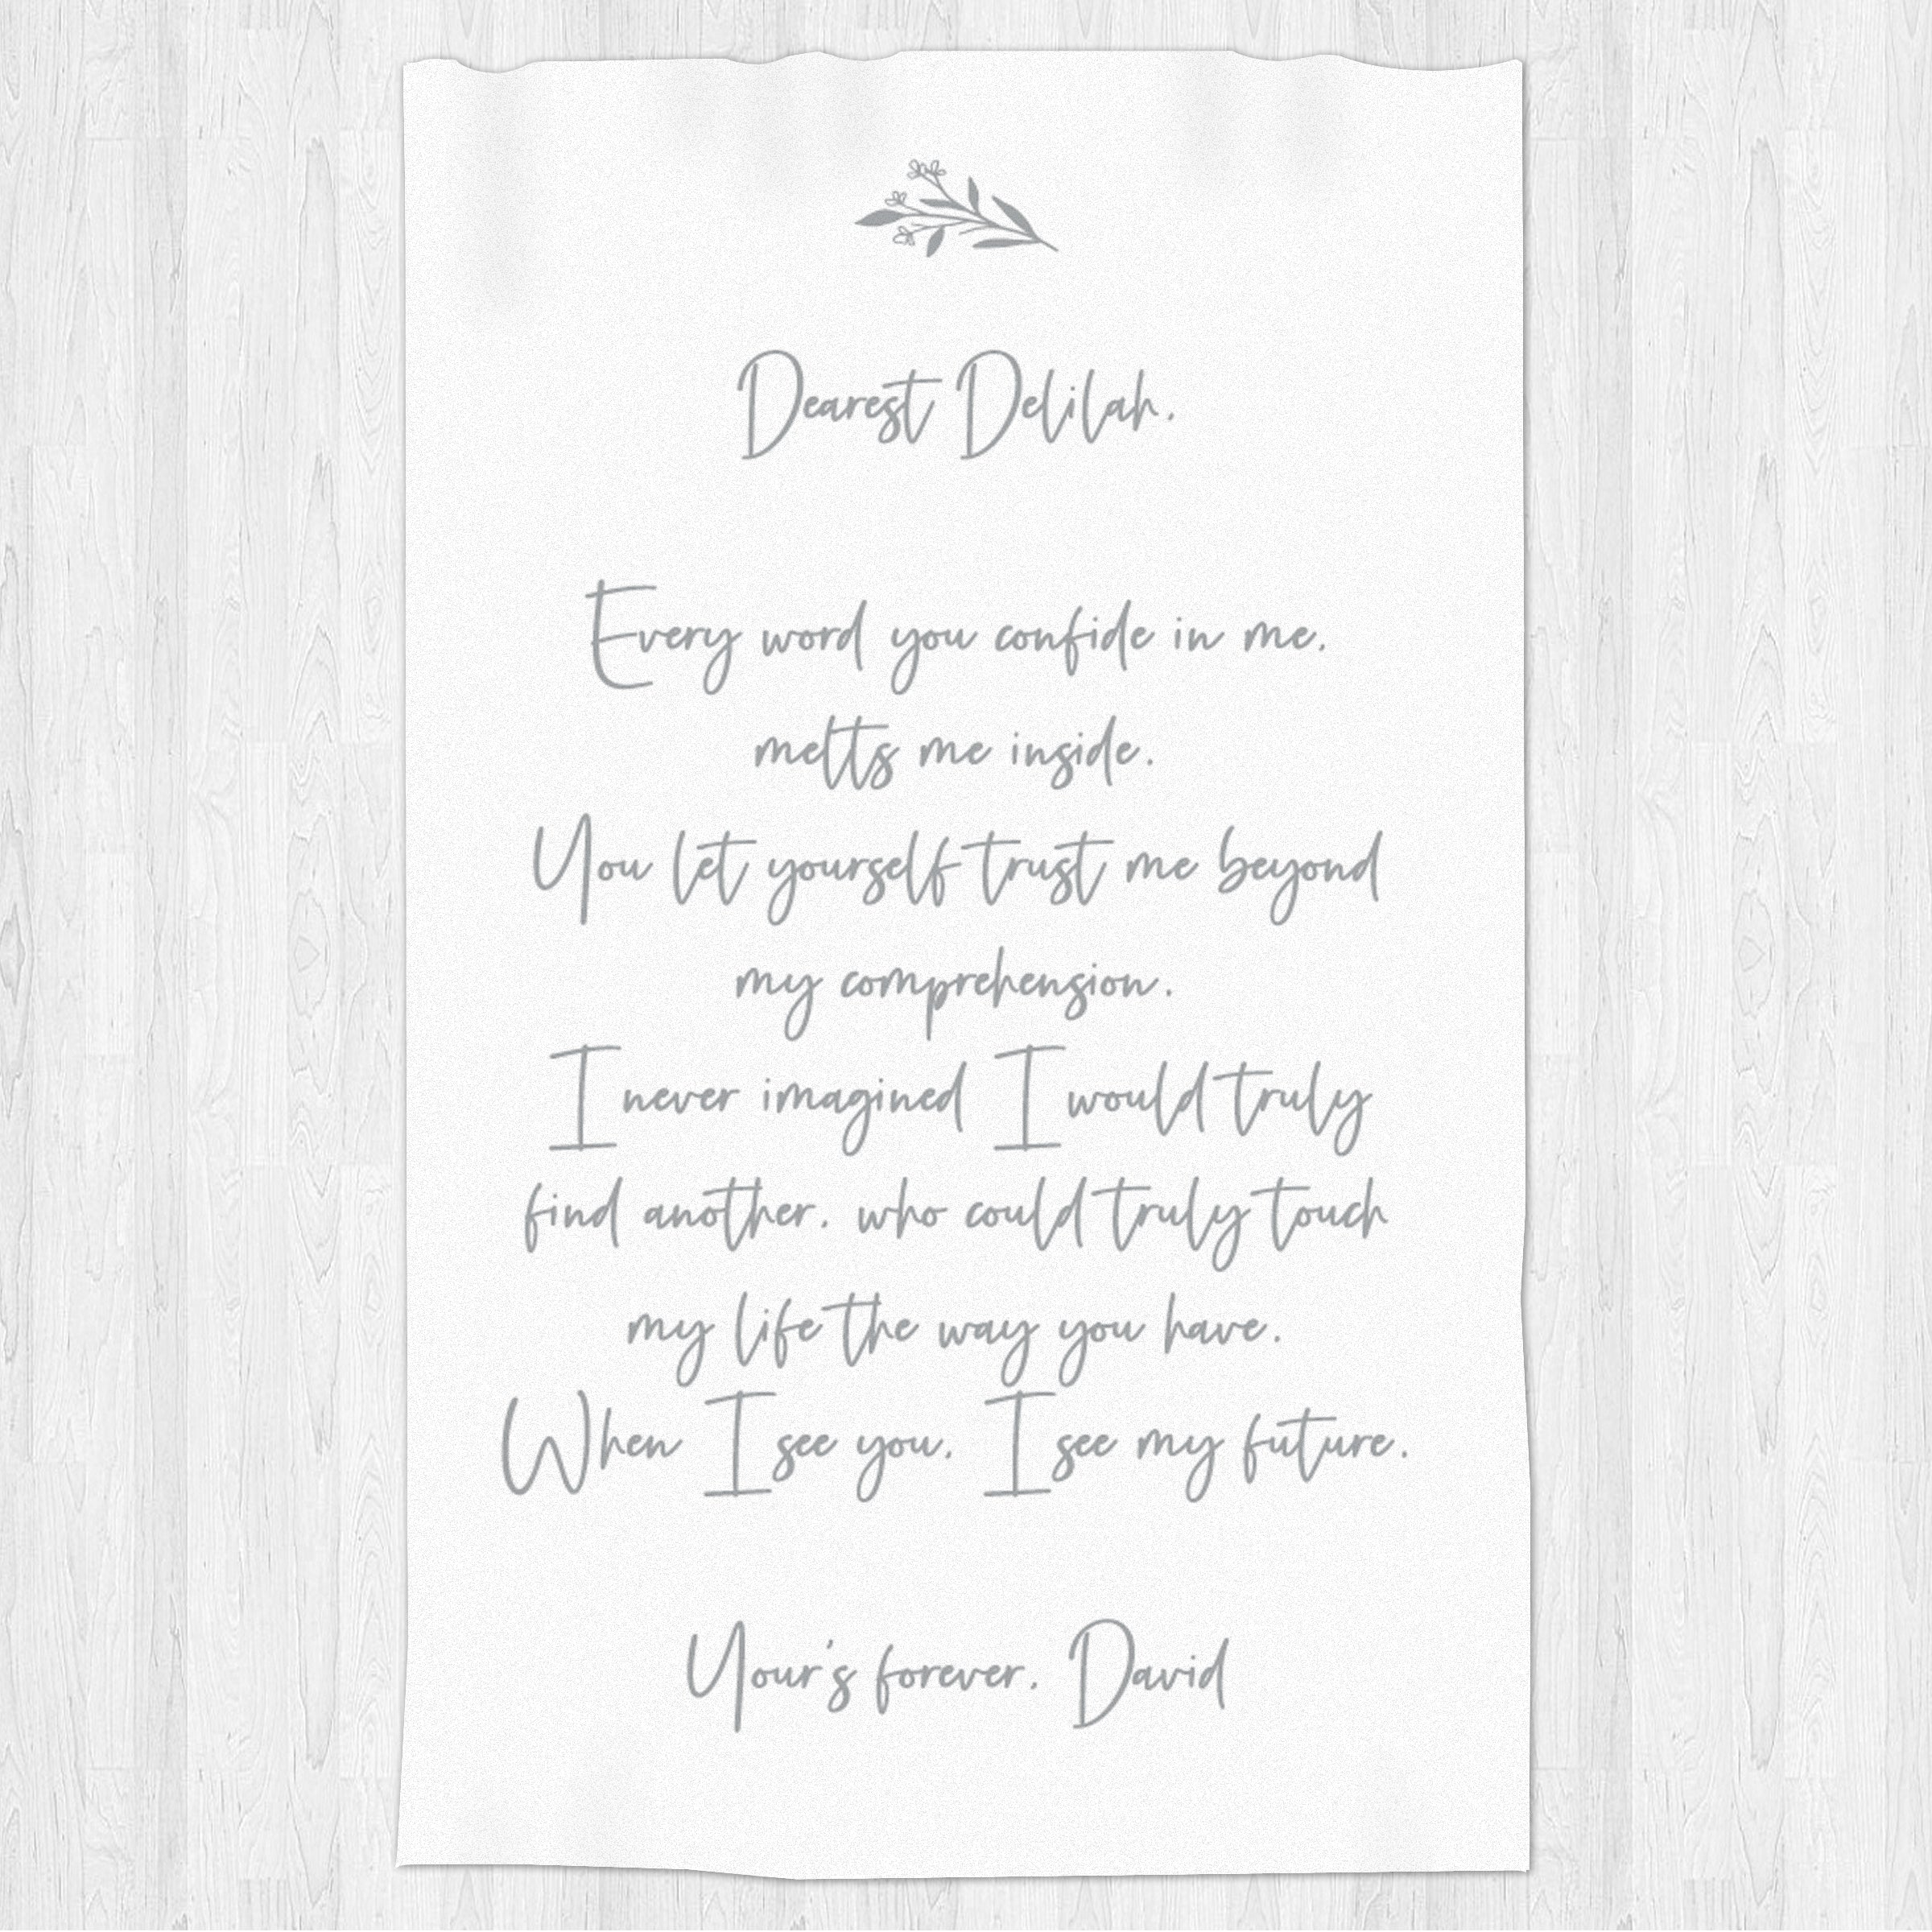 Dearest Delilah,
Every word you confide in me,
melts me inside.
You let yourself trust me beyond
my comprehension.
I never imagined I would truly
find another, who could truly touch
my life the way you have.
When I see you, I see my future.
Your's forever, David